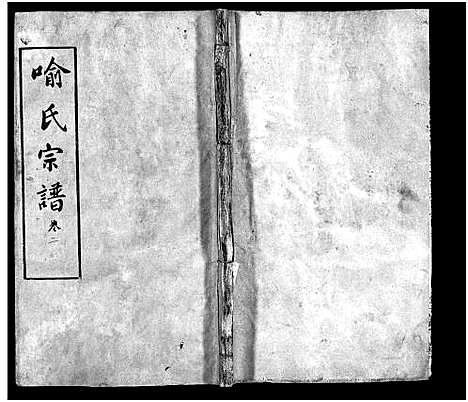 喻氏宗譜 卷二